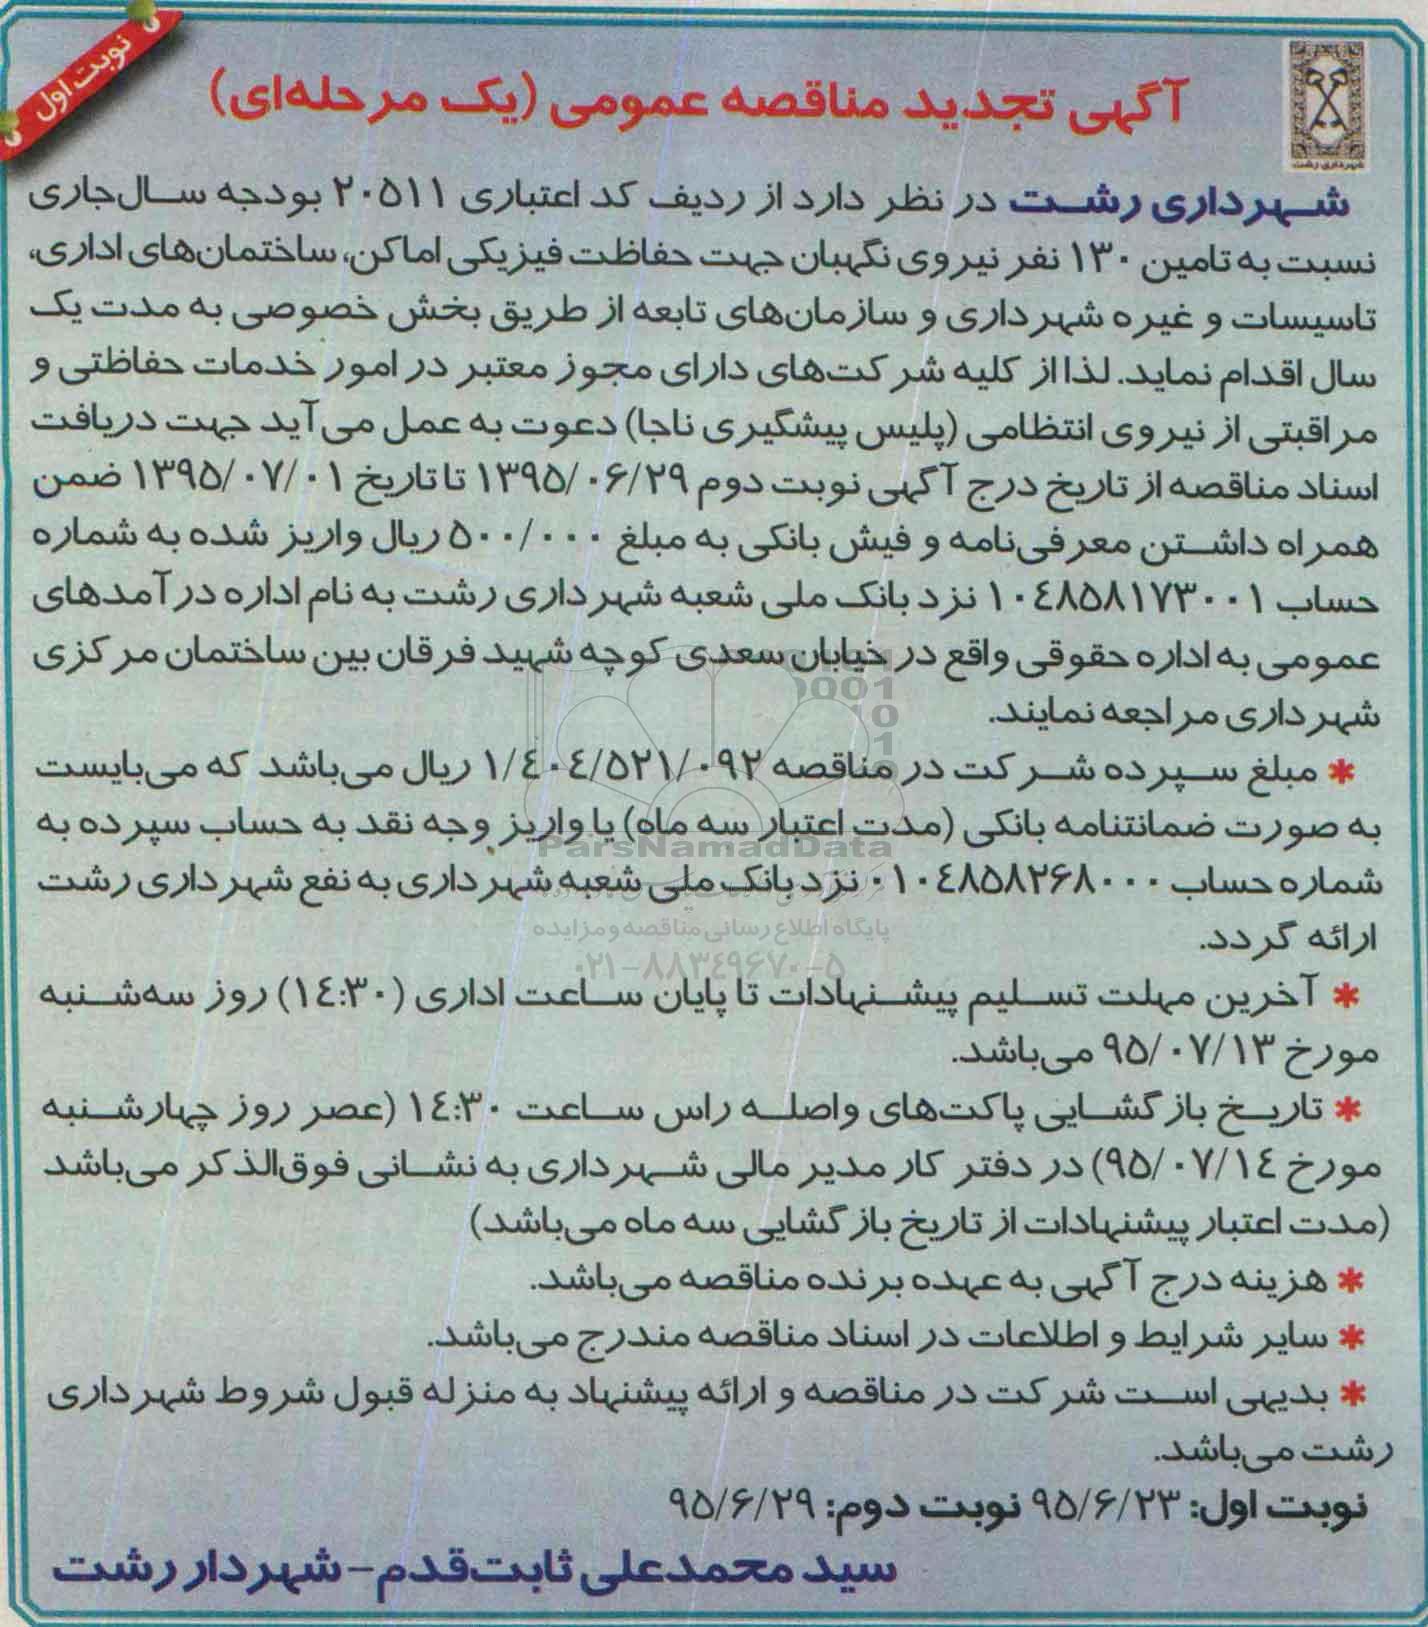 نوبت اول
شهرداری رشت
آگهی تجدید مناقصه عمومی (یک مرحله‌ای)
شهرداری رشت در نظر دارد از ردیف کد اعتباری ۲۰۵۱۱ بودجه سال‌جاری
نسبت به تامین ۱۳۰ نفر نیروی نگهبان جهت حفاظت فیزیکی اماکن، ساختمان‌های اداری،
تاسیسات و غیره شهرداری و سازمان‌های تابعه از طریق بخش خصوصی به مدت یک
سال اقدام نماید. لذا از کلیه شرکت‌های دارای مجوز معتبر در امور خدمات حفاظتی و
مراقبتی از نیروی انتظامی (پلیس پیشگیری ناجا) دعوت به عمل می‌آید جهت دریافت
اسناد مناقصه از تاریخ درج آگهی نوبت دوم ۱۳۹۵/۰۶/۲۹ تا تاریخ ۱۳۹۵/۰۷/۰۱ ضمن
همراه داشتن معرفی‌نامه و فیش بانکی به مبلغ ۵۰۰/۰۰۰ ریال واریز شده به شماره
حساب ۱۰۴۸۵۸۱۷۳۰۰۱ نزد بانک ملی شعبه شهرداری رشت به نام اداره درآمدهای
عمومی به اداره حقوقی واقع در خیابان سعدی کوچه شهید فرقان بین ساختمان مرکزی
شهرداری مراجعه نمایند.
* مبلغ سپرده شرکت در مناقصه ۱/۴۰۴/۵۲۱/۰۹۲ ریال می‌باشد که می‌بایست
به صورت ضمانتنامه بانکی (مدت اعتبار سه ماه) یا واریز وجه نقد به حساب سپرده به
ParsNamadData
شماره حساب ۰۱۰۴۸۵۸۲۶۸۰۰۰ نزد بانک ملی شعبه شهرداری به نفع شهرداری رشت
پایگاه اطلاع رسانی مناقصه و مزایده
ارائه گردد.
۰۲۱-۸۸۳۴۹۶۷۰-۵
* آخرین مهلت تسلیم پیشنهادات تا پایان ساعت اداری (۱۴:۳۰) روز سه‌شنبه
مورخ ۹۵/۰۷/۱۳ می‌باشد.
* تاریخ بازگشایی پاکت‌های واصله راس ساعت ۱۴:۳۰ (عصر روز چهارشنبه
مورخ ۹۵/۰۷/۱۴) در دفتر کار مدیر مالی شهرداری به نشانی فوق‌الذکر می‌باشد
(مدت اعتبار پیشنهادات از تاریخ بازگشایی سه ماه می‌باشد)
* هزینه درج آگهی به عهده برنده مناقصه می‌باشد.
* سایر شرایط و اطلاعات در اسناد مناقصه مندرج می‌باشد.
* بدیهی است شرکت در مناقصه و ارائه پیشنهاد به منزله قبول شروط شهرداری
رشت می‌باشد.
نوبت اول: ۹۵/۶/۲۳ نوبت دوم: ۹۵/۶/۲۹
سید محمدعلی ثابت‌قدم - شهردار رشت